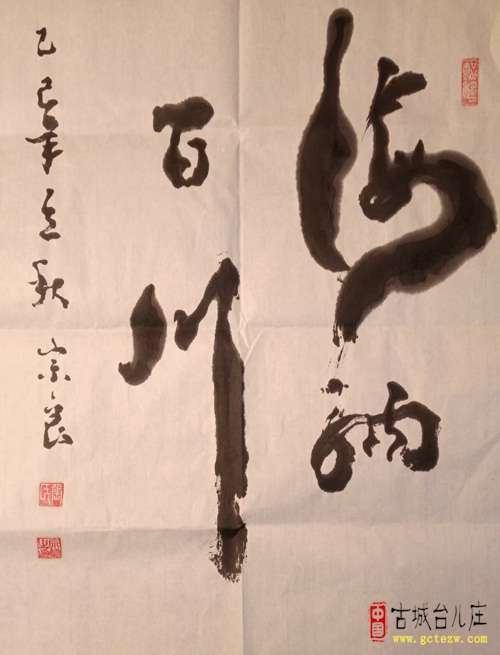 海纳
百川
乙巳年立秋 宗良
张氏
中国
古城台儿庄
www.gctezw.com